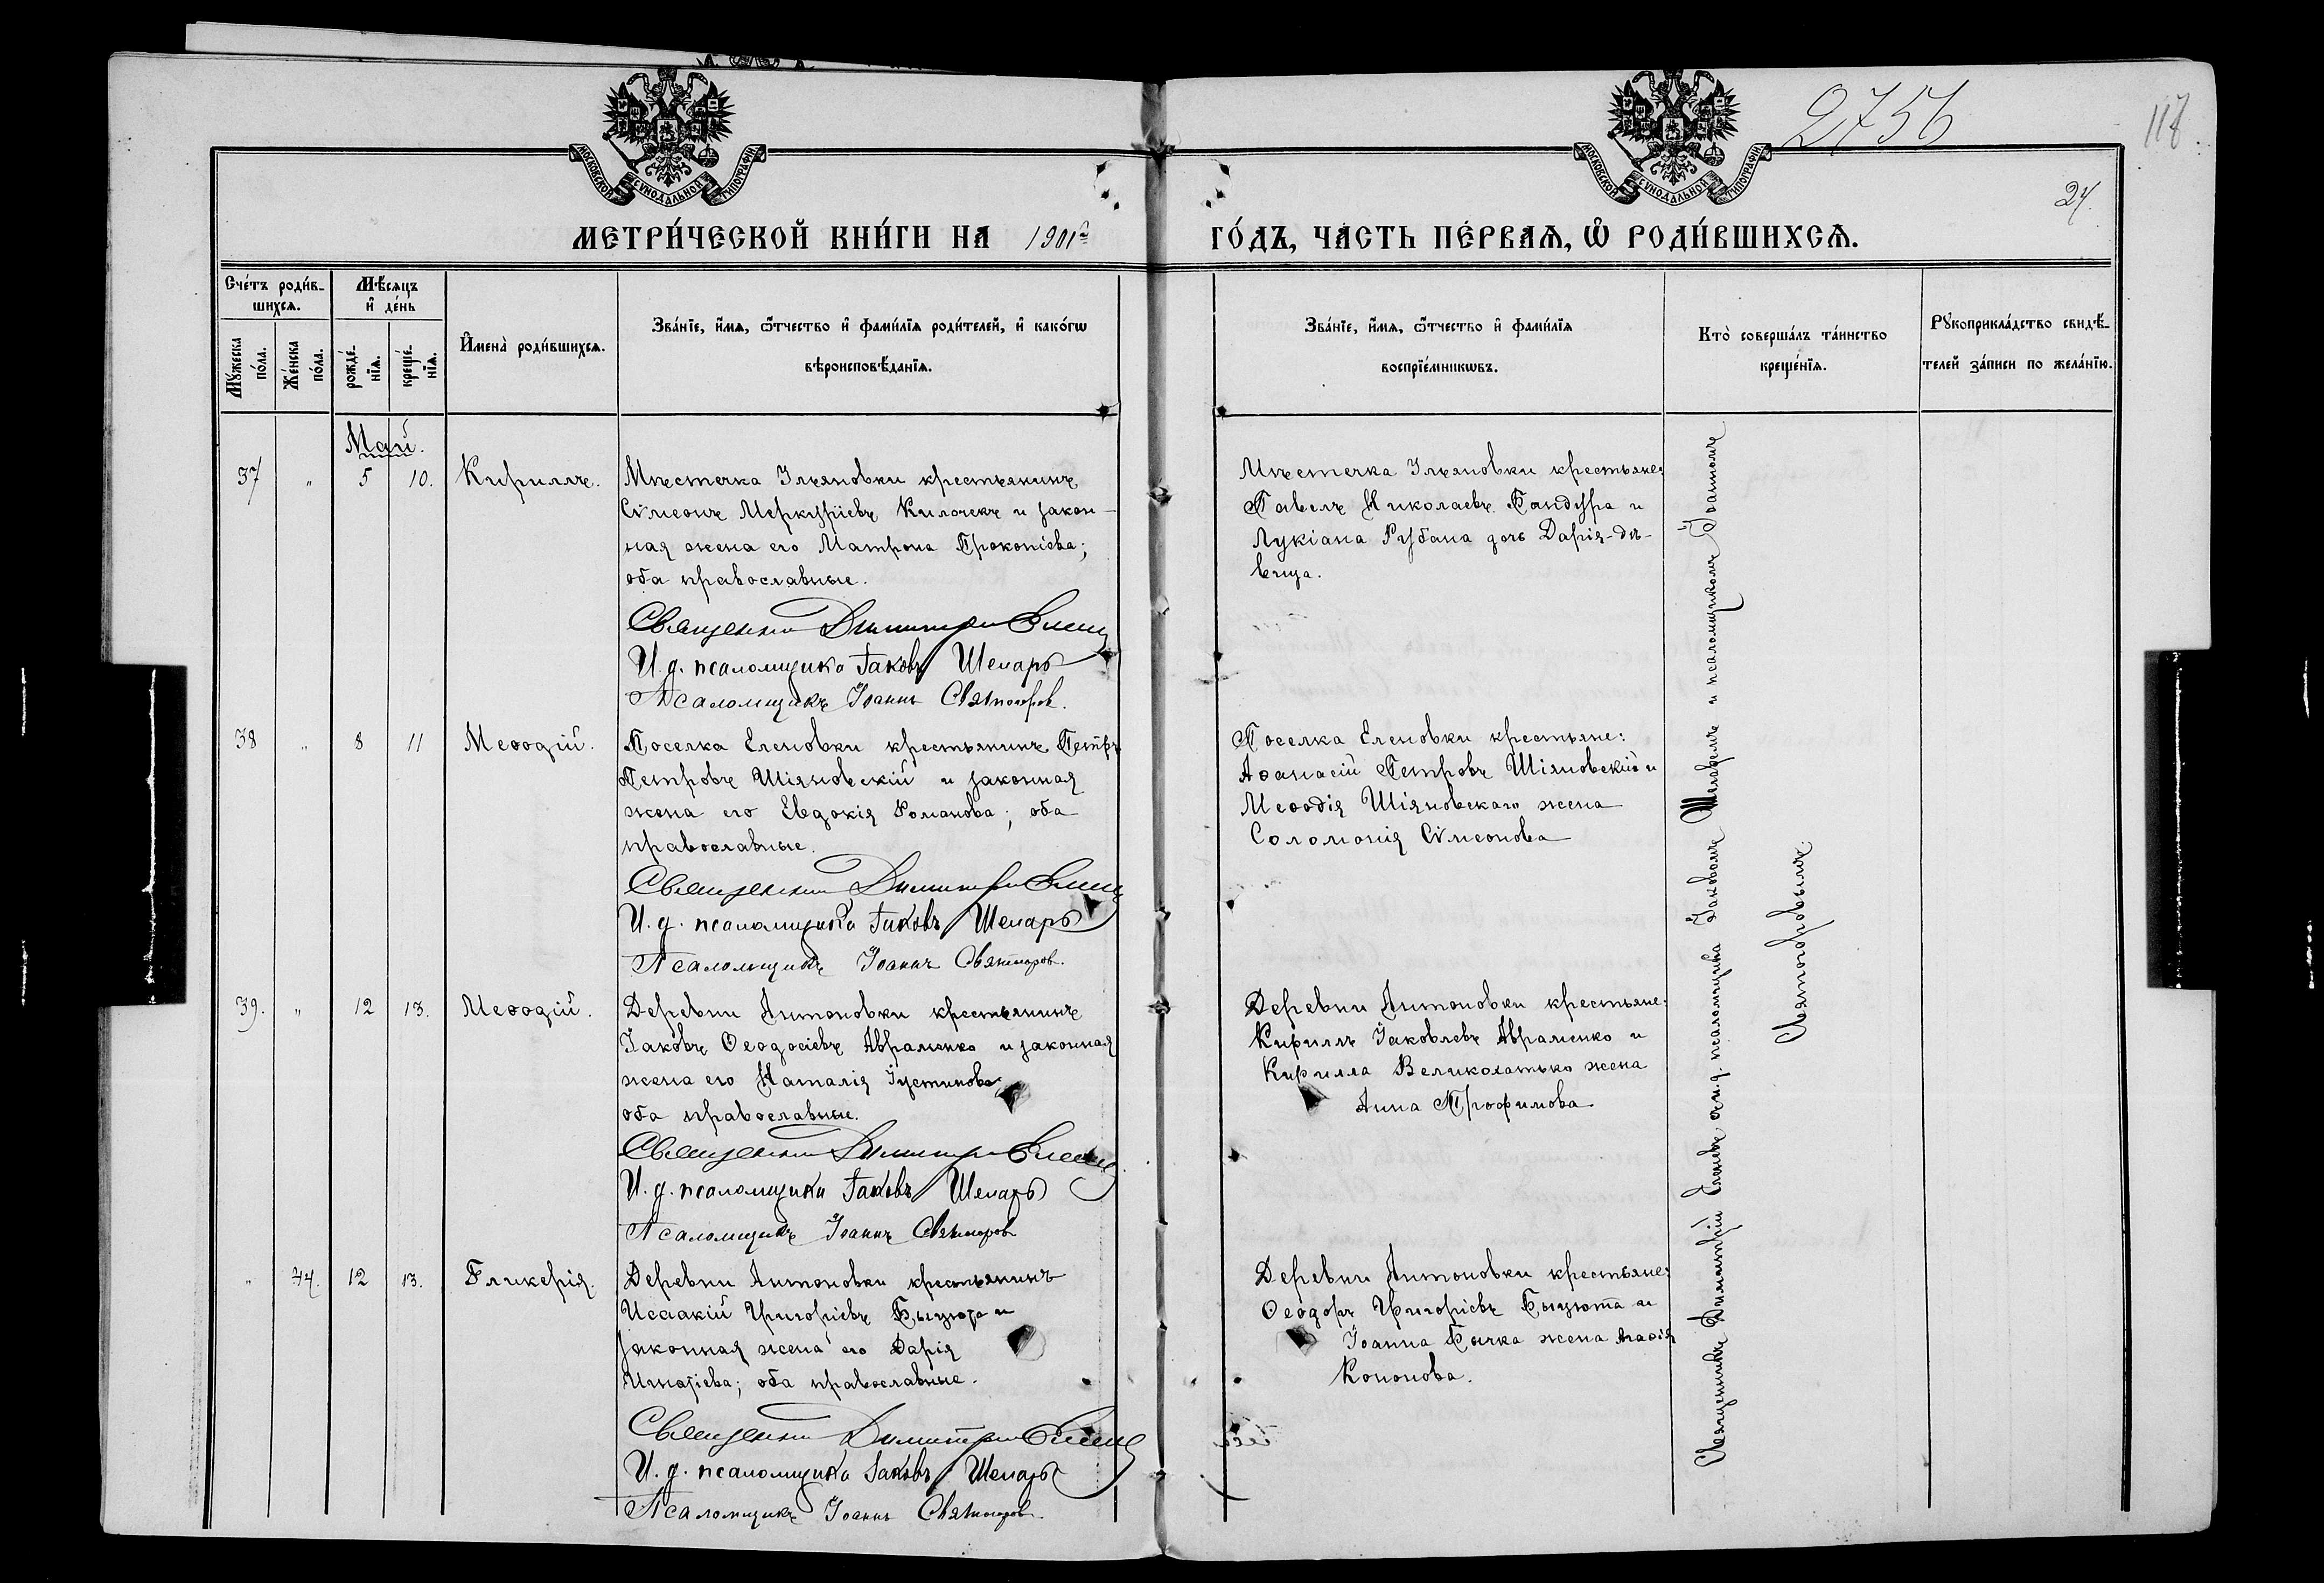 2756
118
24.
МОСКОВСКОЙ СѴНОДАЛЬНОЙ ТИПОГРАФІИ
МОСКОВСКОЙ СѴНОДАЛЬНОЙ ТИПОГРАФІИ
МЕТРИ́ЧЕСКОЙ КНИ́ГИ НА 1901й
ГО́ДЪ, ЧА́СТЬ ПЕ́РВАѦ, Ѡ҆ РОДИ́ВШИХСѦ.
Сче́тъ роди́в-
шихсѧ.
Мꙋ́жеска по́ла.
Же́нска по́ла.
Мѣ́сѧцъ
и҆ де́нь
рожде́-
нїѧ.
креще́-
нїѧ.
И҆мена̀ роди́вшихсѧ.
Зва́нїе, и҆́мѧ, ѻ҆́тчество и҆ фами́лїѧ роди́телей, и҆ како́гѡ
вѣроисповѣ́данїѧ.
Зва́нїе, и҆́мѧ, ѻ҆́тчество и҆ фами́лїѧ
воспрїе́мникѡвъ.
Кто̀ соверша́лъ та́инство
креще́нїѧ.
Рꙋкоприкла́дство свидѣ́-
телей за́писи по жела́нїю.
Май.
37 " 5 10. Кириллъ.
Мѣстечка Ильяновки крестьянинъ
Сѵмеонъ Меркуріевъ Килочекъ и закон-
ная жена его Матрона Прокопіева;
оба православные.
Священникъ Димитрій Еленевъ
И. д. псаломщика Іаковъ Шеларь
Псаломщикъ Іоаннъ Святогоровъ.
Мѣстечка Ильяновки крестьяне:
Павелъ Николаевъ Бандура и
Лукіана Рубана дочь Дарія-дѣ-
вица.
38 " 8 11 Меѳодій.
Поселка Еленовки крестьянинъ Петръ
Петровъ Шіяновскій и законная
жена его Евдокія Романова; оба
православные.
Священникъ Димитрій Еленевъ
И. д. псаломщика Іаковъ Шеларь
Псаломщикъ Іоаннъ Святогоровъ.
Поселка Еленовки крестьяне:
Аѳанасій Петровъ Шіяновскій и
Меѳодія Шіяновскаго жена
Соломонія Сѵмеонова
39. " 12 13. Меѳодій.
Деревни Антоновки крестьянинъ
Іаковъ Ѳеодосіевъ Авраменко и законная
жена его Наталія Іустинова;
оба православные.
Священникъ Димитрій Еленевъ
И. д. псаломщика Іаковъ Шеларь
Псаломщикъ Іоаннъ Святогоровъ
Деревни Антоновки крестьяне:
Кириллъ Іаковлевъ Авраменко и
Кирилла Великолатько жена
Анна Трофимова
" 44. 12 13. Гликерія.
Деревни Антоновки крестьянинъ
Исаакій Григоріевъ Быцюта и
законная жена его Дарія
Игнатіева; оба православные.
Священникъ Димитрій Еленевъ
И. д. псаломщика Іаковъ Шеларь
Псаломщикъ Іоаннъ Святогоровъ.
Деревни Антоновки крестьяне:
Ѳеодоръ Григоріевъ Быцюта и
Іоанна Бычка жена Агаѳія
Кононова.
Священникъ Димитрій Еленевъ съ и. д. псаломщика Іаковомъ Шеларемъ и псаломщикомъ Іоанномъ
Святогоровымъ.